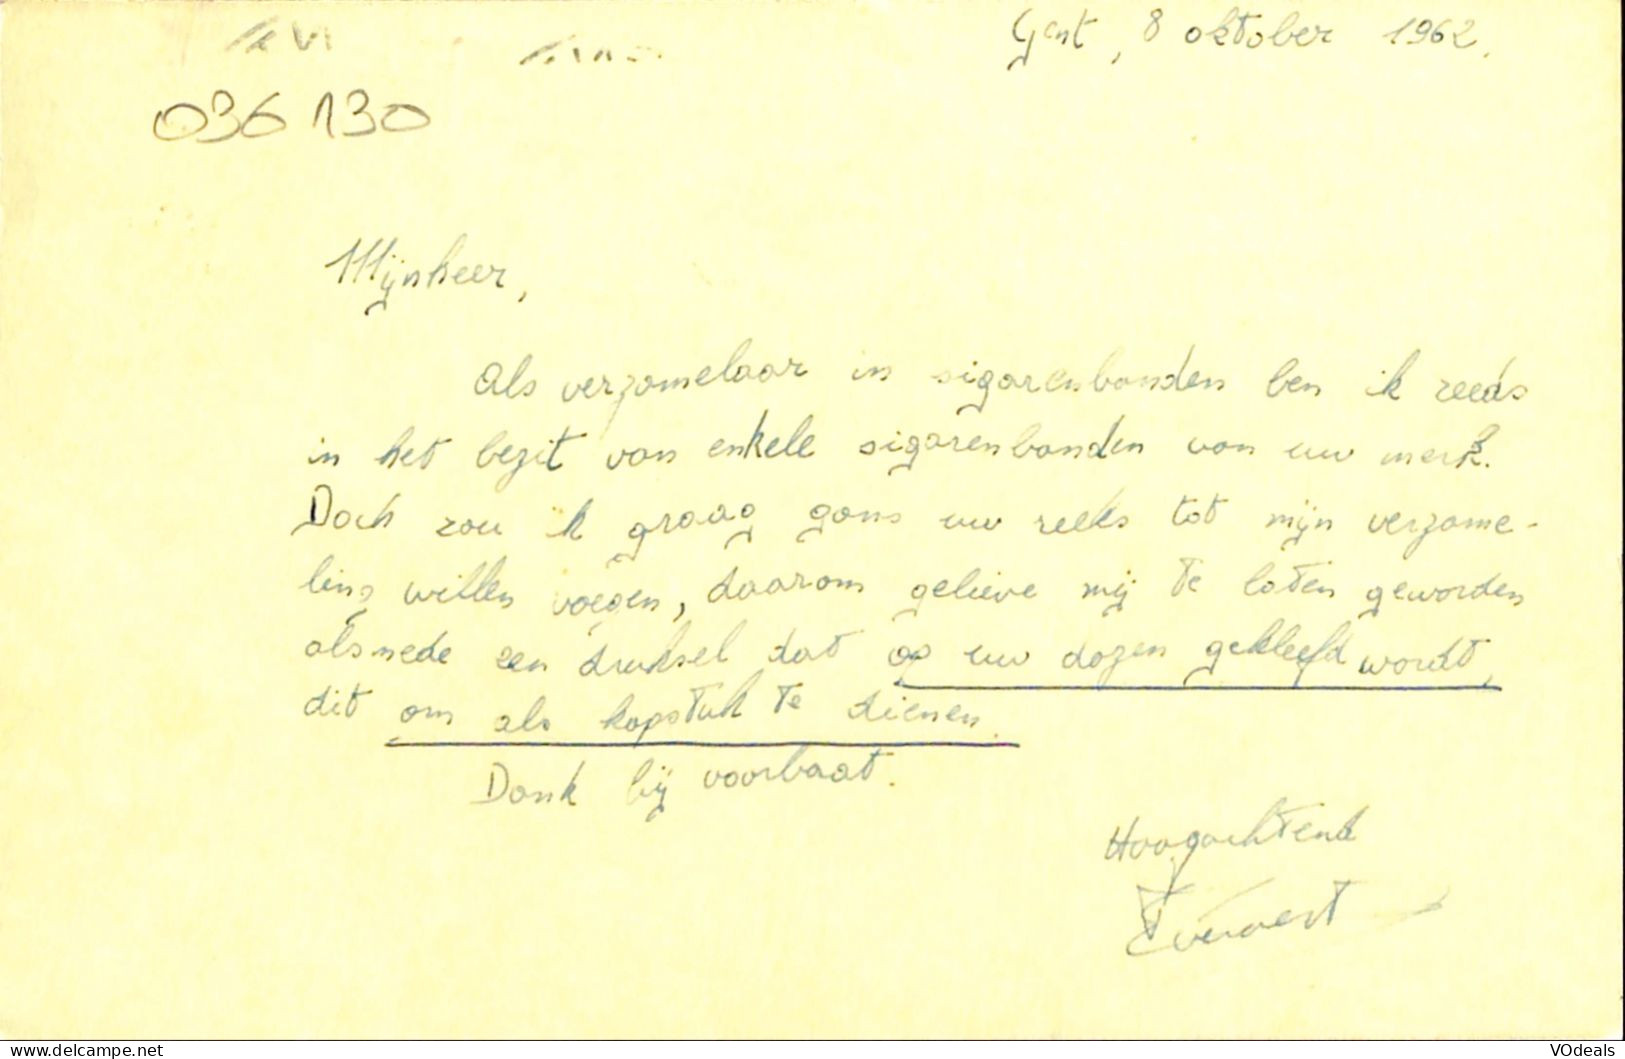 Gent, 8 oktober 1962.
036 130
Mijnheer,
Als verzamelaar in sigarenbanden ben ik reeds
in het bezit van enkele sigarenbanden van uw merk.
Doch zou ik graag gans uw reeks tot mijn verzame-
ling willen voegen, daarom gelieve mij te laten geworden
alsmede een druksel dat op uw dozen gekleefd wordt,
dit om als kopstuk te dienen.
Dank bij voorbaat.
Hoogachtend
Everaert
delcampe.net
VOdeals